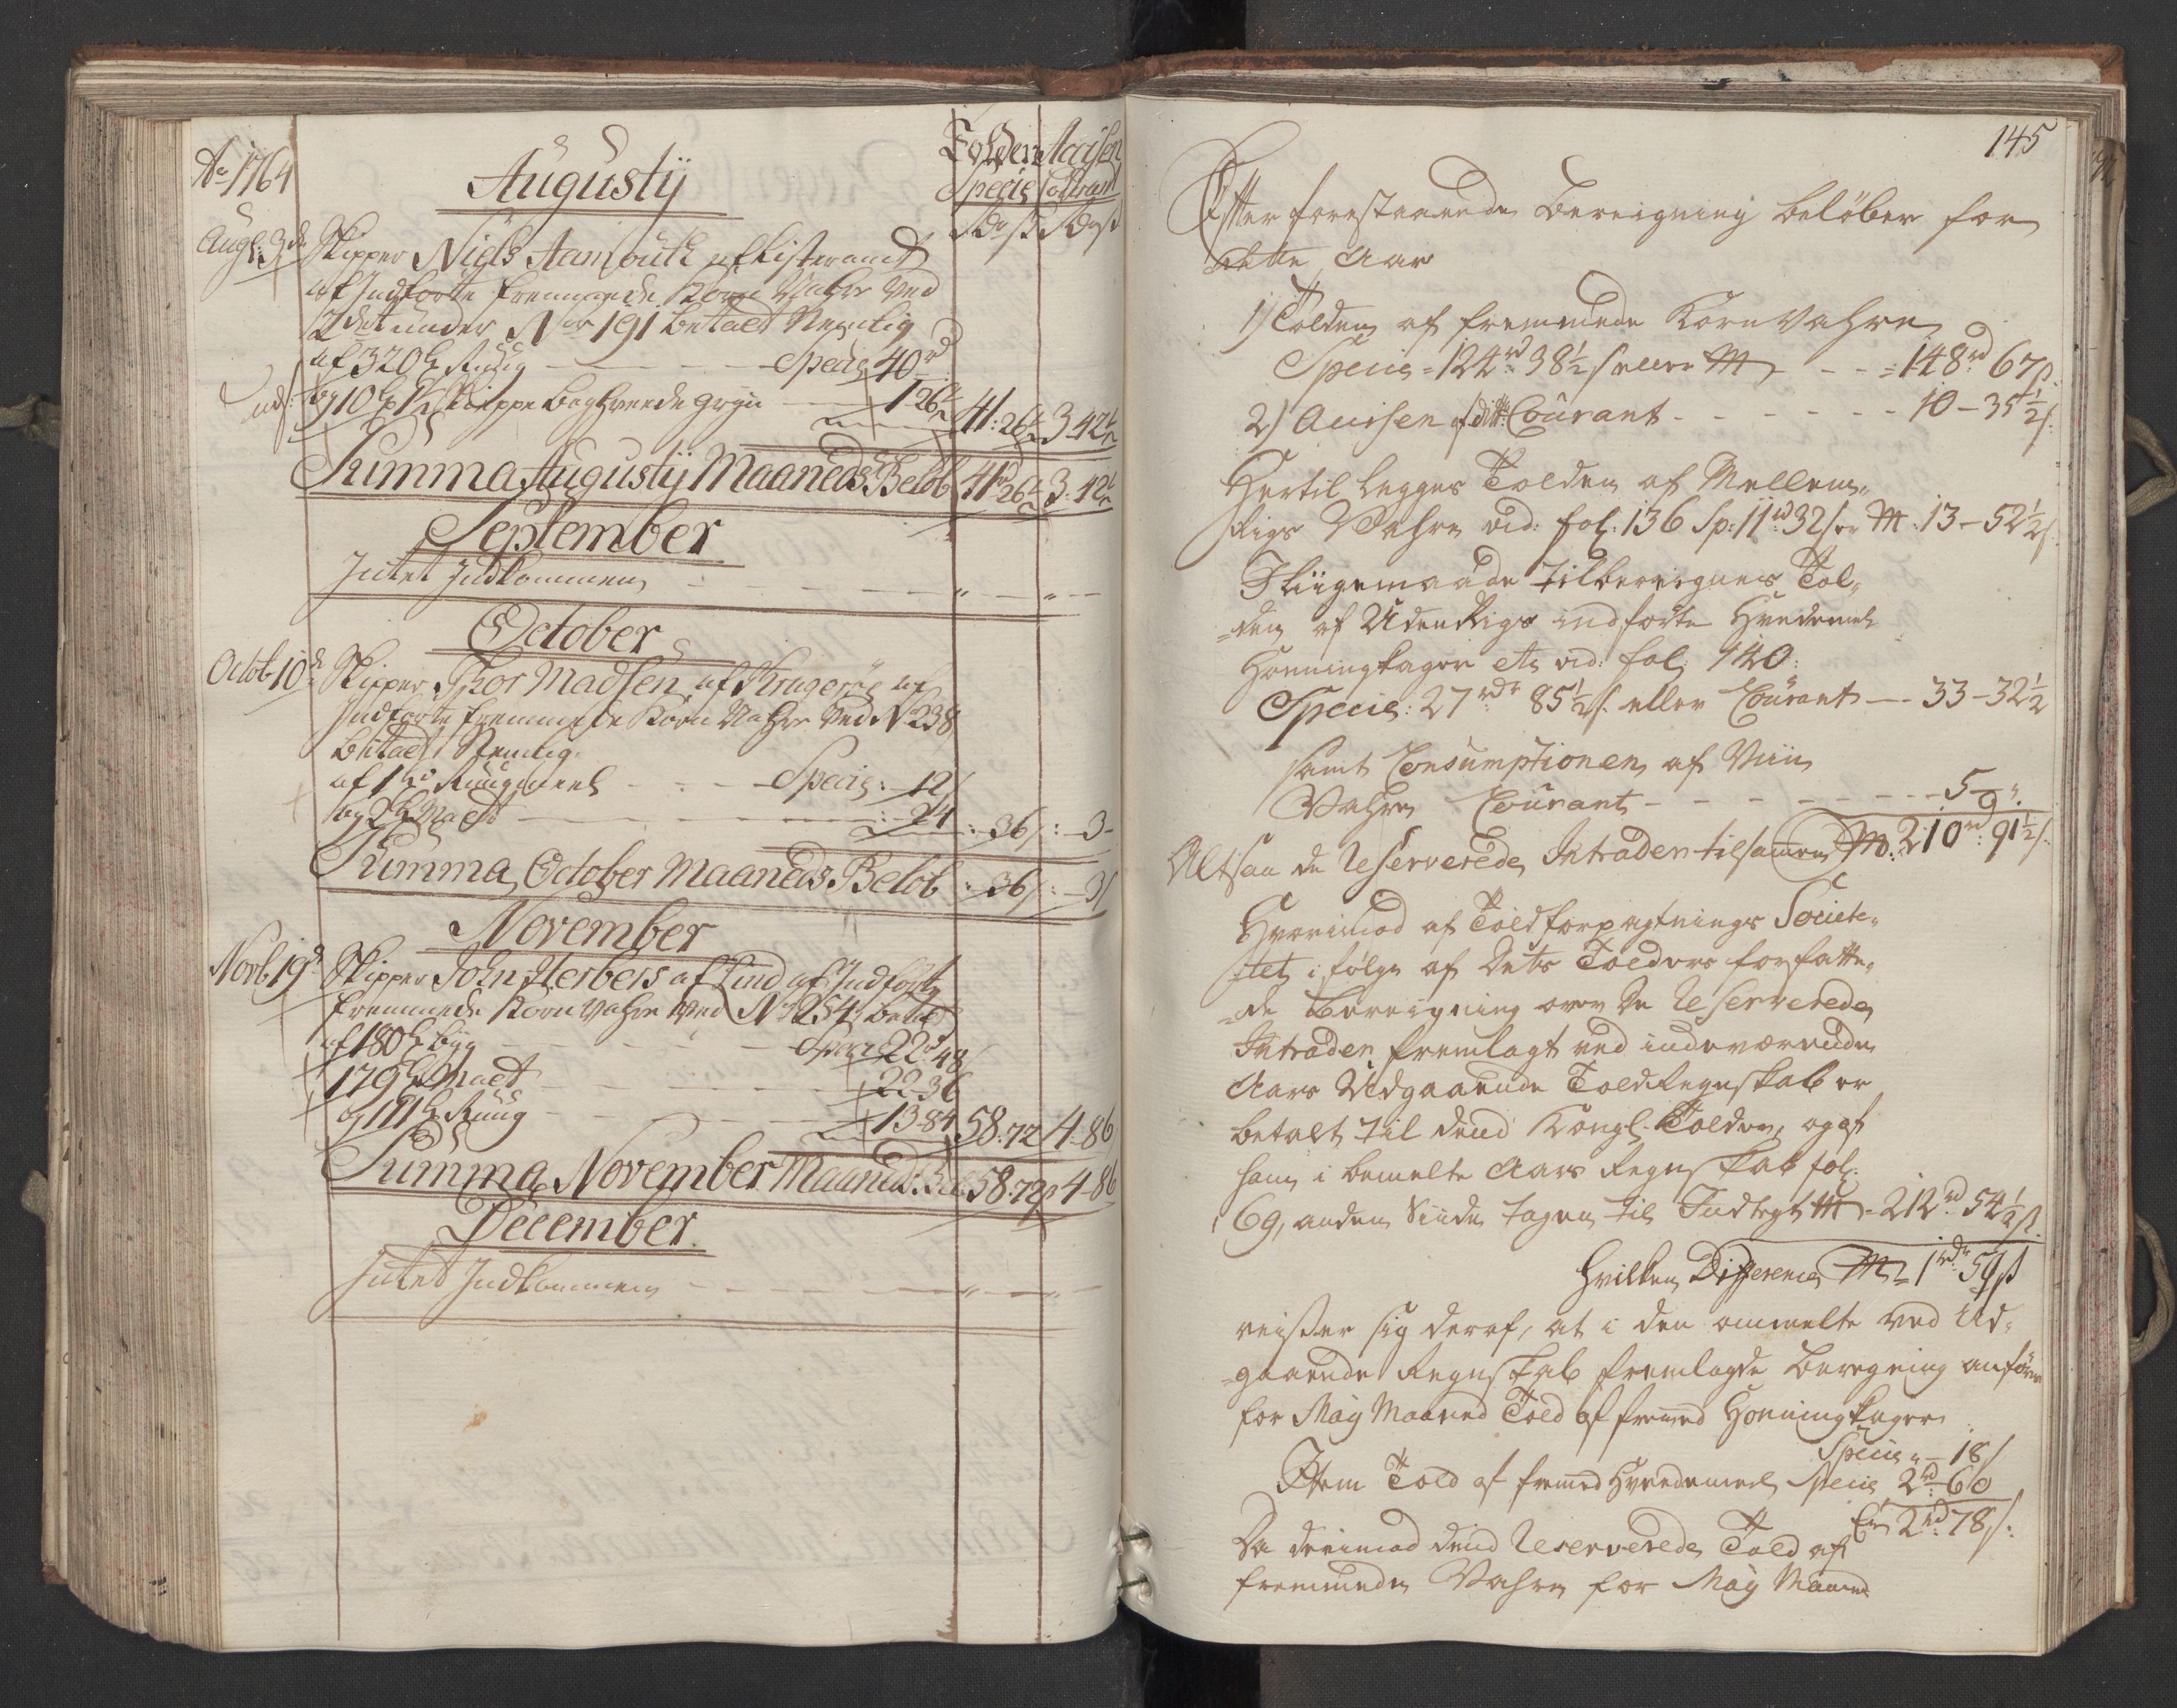 Ao 1764
Augustij
Tolden Acisen
Specie Courant
rd ß rd ß
Augt: 3de Skipper Niels Aamouth af Listeramt
af Indførte fremmede Korn Vahre ved
2det under No 191 betalt Nemlig
af 320 tr Rúúg — Specie 40 rd
og 10 tr 1/2 Skieppe Boghvede gryn — 1 26 1/2 41: 26 1/2 3 42 1/2
Summa Augustij Maaneds Beløb 41 rd 26 1/2 3: 42 1/2
September
Intet Indkommen — " — " —
October
Octob: 10de Skipper Thor Madsen af Kragerøe af
Indførte fremmede Korn Vahre ved No 238
betalt Nemlig
af 1 tr Rúúgmeel — Specie: 12 ß
og 2 tr Malt — : 24 : 36 ß : 3
Summa October Maaneds Beløb : 36 ß : 3 ß
November
Novb: 19de Skipper John Herbers af Lind af Indførte
fremmede Korn Vahre ved No 254 betalt
af 180 tr Byg — Specie 22 rd 48
179 tr Malt — 22 36
og 111 tr Rúúg — 13 84 58: 72 4 86
Summa November Maaneds Bel: 58: 72 ß 4 86
December
Intet Indkommen — " — " —
145
Efter forestaaende Bereigning beløber for
dette Aar
1) Tolden af fremmede Korn Vahre
Specie 124 rd 38 1/2 ß eller M — 148 rd 67 ß
2) Acisen af ditto Courant — 10 — 35 1/2 ß.
Hertil legges Tolden af Mellem„
Rigs Vahre vid: fol: 136 Sp: 11 rd 32 ß er M: 13 — 52 1/2 ß
I liigemaade tilbereignes Tol„
„den af Uden Rigs indførte Hvedemel
Honningkager etc vid: fol: 140:
Specie: 27 rdr 85 1/2 ß. eller Courant — 33 — 32 1/2
samt Consumptionen af Viin
Vahre Courant — 5 — ".
Altsaa de Reserverede Intrader tilsamen M: 210 rd 91 1/2 ß.
Hvorimod af Toldforpagtnings Societe„
„tet i følge af dets Tolders forfatte„
„de Bereigning over de Reserverede
Intrader fremlagt ved indeværende
Aars Udgaaende Told Regnskab er
betalt til dend Kongl. Tolder, og af
ham i bemelte Aars Regnskab fol:
69, anden Siide tagen til Indtegt M = 212 rd 54 1/2 ß.
Hvilken Difference M = 1 rdr 59 ß
reiser sig deraf, at i den ommelte ved Ud„
„gaaende Regnskab fremlagde Beregning anføres
for Maÿ Maaned Told af fremed Honningkager
Specie " — 18 ß
Item Told af fremed Hvedemel Specie 2 rd — 60
Er 2 rd 78 ß.
Da derimod dend Reserverede Told af
fremmede Vahre for Maÿ Maaned